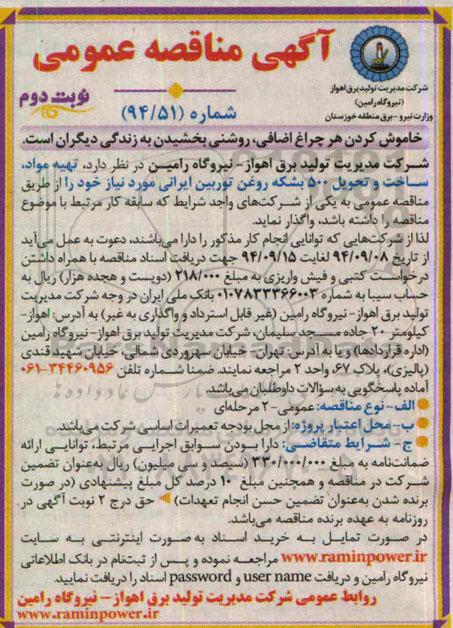 آگهی مناقصه عمومی
شرکت مدیریت تولید برق اهواز
(نیروگاه رامین)
وزارت نیرو - برق منطقه خوزستان
نوبت دوم
شماره (۹۴/۵۱)
خاموش کردن هر چراغ اضافی، روشنی بخشیدن به زندگی دیگران است.
شرکت مدیریت تولید برق اهواز- نیروگاه رامین در نظر دارد، تهیه مواد،
ساخت و تحویل ۵۰۰ بشکه روغن توربین ایرانی مورد نیاز خود را از طریق
مناقصه عمومی به یکی از شرکت‌های واجد شرایط که سابقه کار مرتبط با موضوع
مناقصه را داشته باشد، واگذار نماید.
لذا از شرکت‌هایی که توانایی انجام کار مذکور را دارا می‌باشند، دعوت به عمل می‌آید
از تاریخ ۹۴/۰۹/۰۸ لغایت ۹۴/۰۹/۱۵ جهت دریافت اسناد مناقصه با همراه داشتن
درخواست کتبی و فیش واریزی به مبلغ ۲۱۸/۰۰۰ (دویست و هجده هزار) ریال به
حساب سیبا به شماره ۰۱۰۷۸۳۳۳۶۶۰۰۳ بانک ملی ایران در وجه شرکت مدیریت
تولید برق اهواز- نیروگاه رامین (غیر قابل استرداد و واگذاری به غیر) به آدرس: اهواز-
کیلومتر ۲۰ جاده مسجد سلیمان، شرکت مدیریت تولید برق اهواز- نیروگاه رامین
(اداره قراردادها) و یا به آدرس: تهران- خیابان سهروردی شمالی، خیابان شهید قندی
(پالیزی)، پلاک ۶۷، واحد ۲ مراجعه نمایند. ضمنا شماره تلفن ۳۴۴۶۰۹۵۶-۰۶۱
آماده پاسخگویی به سؤالات داوطلبان می‌باشد.
الف- نوع مناقصه: عمومی- ۲ مرحله‌ای
ب- محل اعتبار پروژه: از محل بودجه تعمیرات اساسی شرکت می‌باشد.
ج- شرایط متقاضی: دارا بودن سوابق اجرایی مرتبط، توانایی ارائه
ضمانت‌نامه به مبلغ ۳۳۰/۰۰۰/۰۰۰ (سیصد و سی میلیون) ریال به‌عنوان تضمین
شرکت در مناقصه و همچنین مبلغ ۱۰ درصد کل مبلغ پیشنهادی (در صورت
برنده شدن به‌عنوان تضمین حسن انجام تعهدات) حق درج ۲ نوبت آگهی در
روزنامه به عهده برنده مناقصه می‌باشد.
در صورت تمایل به خرید اسناد به صورت اینترنتی به سایت
www.raminpower.ir مراجعه نموده و پس از ثبت‌نام در بانک اطلاعاتی
نیروگاه رامین و دریافت user name و password اسناد را دریافت نمایید.
روابط عمومی شرکت مدیریت تولید برق اهواز - نیروگاه رامین
www.raminpower.ir